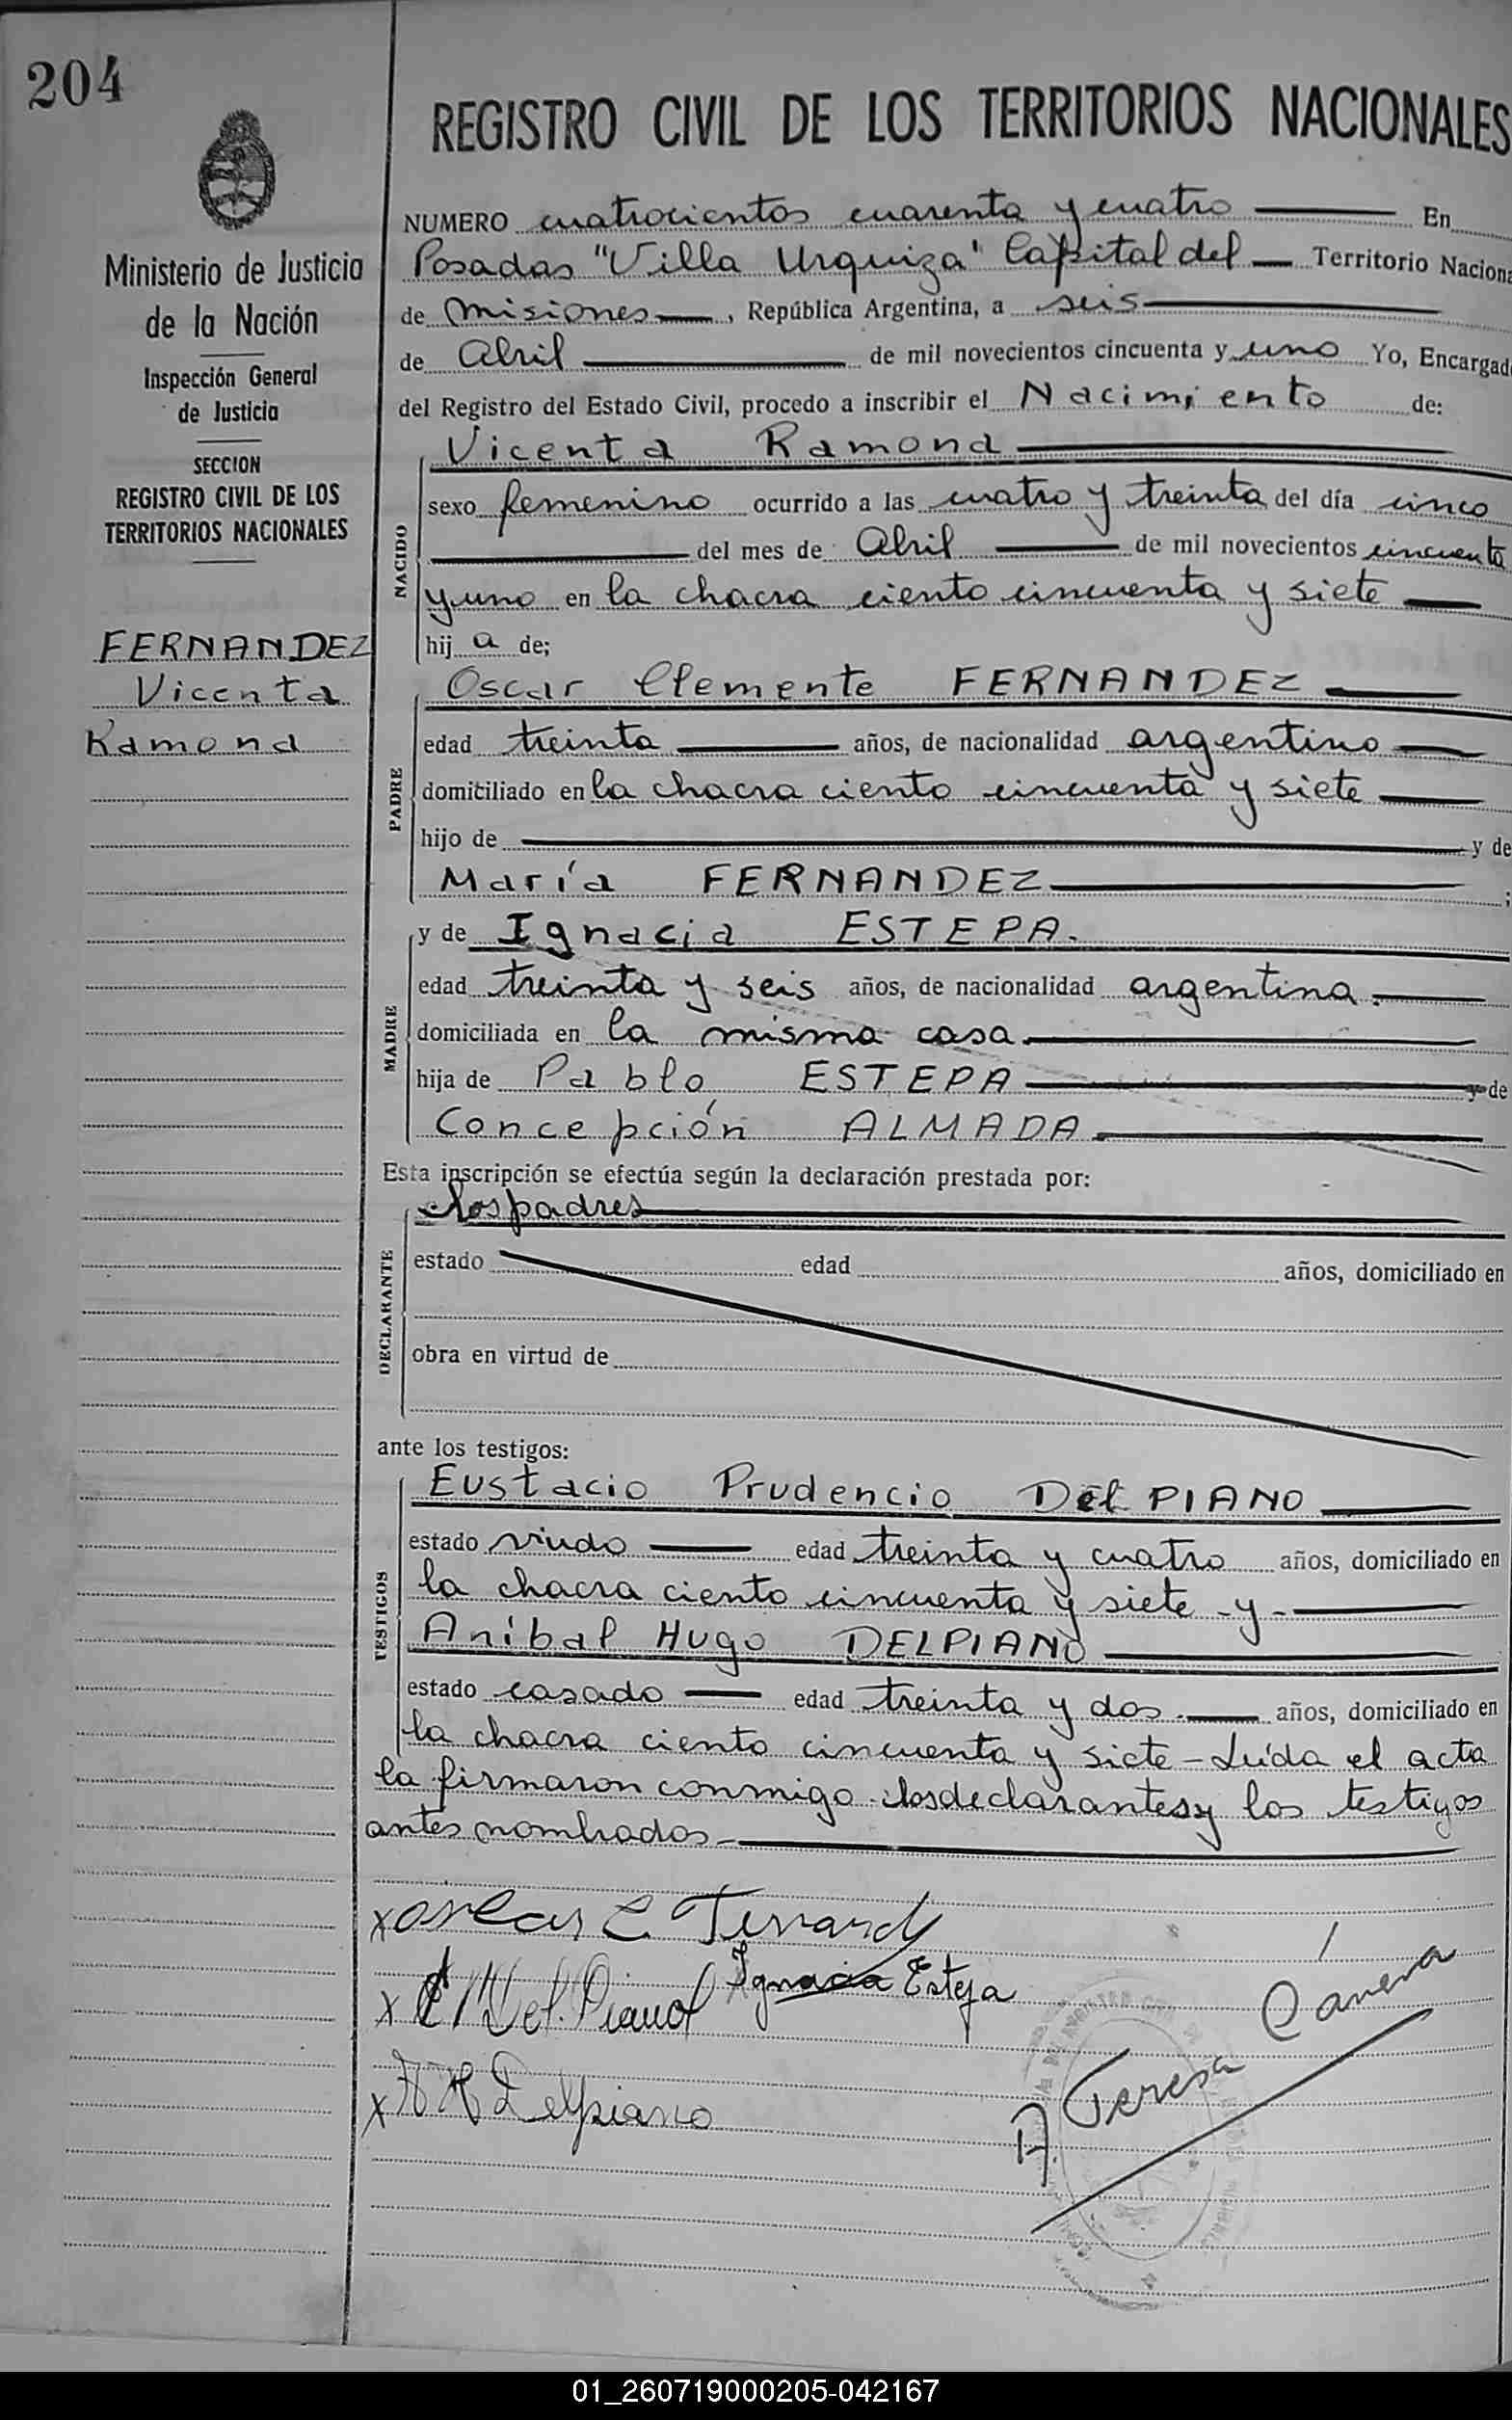 204
REGISTRO CIVIL DE LOS TERRITORIOS NACIONALES
Ministerio de Justicia
de la Nación
Inspección General
de Justicia
SECCION
REGISTRO CIVIL DE LOS
TERRITORIOS NACIONALES
FERNANDEZ
Vicenta
Ramona
NUMERO cuatrocientos cuarenta y cuatro En
Posadas "Villa Urquiza" Capital del Territorio Naciona
de Misiones, República Argentina, a seis
de Abril de mil novecientos cincuenta y uno Yo, Encargad
del Registro del Estado Civil, procedo a inscribir el Nacimiento de:
NACIDO
Vicenta Ramona
sexo femenino ocurrido a las cuatro y treinta del día cinco
del mes de Abril de mil novecientos cincuenta
y uno en la chacra ciento cincuenta y siete
hija de;
PADRE
Oscar Clemente FERNANDEZ
edad treinta años, de nacionalidad argentino
domiciliado en la chacra ciento cincuenta y siete
hijo de y de
María FERNANDEZ ;
MADRE
y de Ignacia ESTEPA.
edad treinta y seis años, de nacionalidad argentina.
domiciliada en la misma casa.
hija de Pablo ESTEPA y de
Concepción ALMADA
Esta inscripción se efectúa según la declaración prestada por:
DECLARANTE
los padres
estado edad años, domiciliado en
obra en virtud de
ante los testigos:
TESTIGOS
Eustacio Prudencio Del PIANO
estado viudo edad treinta y cuatro años, domiciliado en
la chacra ciento cincuenta y siete - y -
Aníbal Hugo DELPIANO
estado casado edad treinta y dos años, domiciliado en
la chacra ciento cincuenta y siete - Leída el acta
la firmaron conmigo los declarantes y los testigos
antes nombrados.
x Oscar C. Fernandz
Ignacia Estepa
x Del Piano
x A H Delpiano
A. Teresa Cáneva
01_260719000205-042167